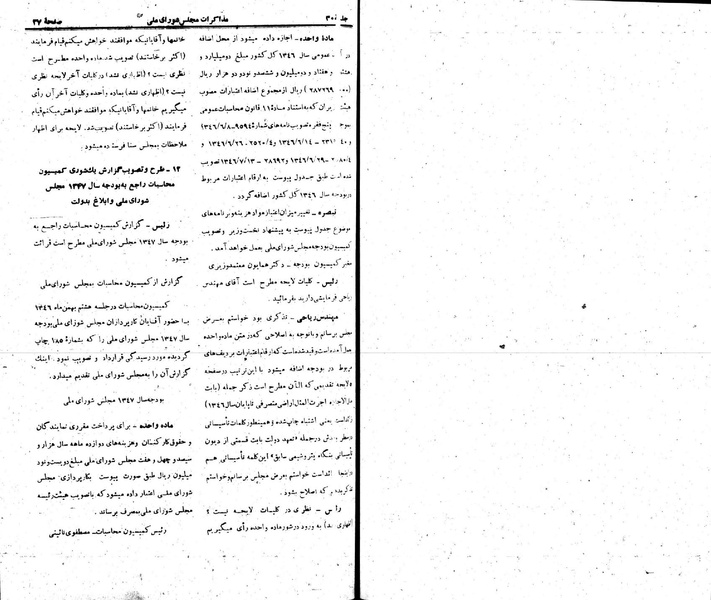 جلسه ۳۰۰
مذاکرات مجلس شورای ملی
صفحهٔ ۲۷
ماده واحده - اجازه داده میشود از محل اضافه
درآمد عمومی سال ۱۳۴۶ کل کشور مبلغ دو میلیارد و
هشتصد و هفتاد و دو میلیون و ششصد و نود و دو هزار ریال
ریال از مجموع اضافه اعتبارات مصوب
هیئت وزیران که به استناد مادهٔ ۱۱ قانون محاسبات عمومی
بموجب پنج فقره تصویب نامه‌های شمارهٔ ۹۵۹۴-۱۳۴۶/۶/۸
۱۳۴۶/۶/۱۴ و ۲۵۲۰۴-۱۳۴۶/۶/۲۶
۱۳۴۶/۶/۲۹ و ۲۸۶۹۲-۱۳۴۶/۷/۱۳ تصویب
شده است طبق جدول پیوست به ارقام اعتبارات مربوط
در بودجه سال ۱۳۴۶ کل کشور اضافه گردد.
تبصره - تغییر میزان اعتبار مواد هزینه و برنامه‌های
موضوع جدول پیوست به پیشنهاد نخست وزیر و تصویب
کمیسیون بودجه مجلس شورای ملی بعمل خواهد آمد.
مخبر کمیسیون بودجه - دکتر همایون معتمد وزیری
رئیس - کلیات لایحه مطرح است آقای مهندس
ریاحی فرمایشی دارید بفرمائید.
مهندس ریاحی - تذکری بود خواستم بعرض
مجلس برسانم و با توجه به اصلاحی که در متن ماده واحده
بعمل آمده است و قید شده است که ارقام اعتبارات بر ردیفهای
مربوط در بودجه اضافه میشود با این ترتیب در صفحه
لایحه تقدیمی که الان مطرح است ذکر جمله (بابت
مال‌الاجاره اجرت‌المثل اراضی متصرفی تا پایان سال ۱۳۴۶)
زائد است یعنی اشتباه چاپ شده و همینطور کلمات تأسیساتی
در جمله «تعهد دولت بابت قسمتی از دیون
تأسیساتی بنگاه پتروشیمی سابق» این کلمه تأسیساتی هم
در اینجا زائد است خواستم بعرض مجلس برسانم و خواستم
تذکر بدهم که اصلاح بشود.
رئیس - نظری در کلیات لایحه نیست؟
(اظهاری نشد) به ورود در شور ماده واحده رأی میگیریم
خانمها و آقایانیکه موافقند خواهش میکنم قیام فرمایند
(اکثر برخاستند) تصویب شد. ماده واحده مطرح است
نظری نیست؟ (اظهاری نشد) در کلیات آخر لایحه نظری
نیست؟ (اظهاری نشد) بماده واحده و کلیات آخر آن رأی
میگیریم خانمها و آقایانیکه موافقند خواهش میکنم قیام
فرمایند (اکثر برخاستند) تصویب شد. لایحه برای اظهار
ملاحظات بمجلس سنا فرستاده میشود.
۱۲ - طرح و تصویب گزارش یکشوری کمیسیون
محاسبات راجع به بودجه سال ۱۳۴۷ مجلس
شورای ملی و ابلاغ بدولت
رئیس - گزارش کمیسیون محاسبات راجع به
بودجه سال ۱۳۴۷ مجلس شورای ملی مطرح است قرائت
میشود.
گزارش از کمیسیون محاسبات بمجلس شورای ملی
کمیسیون محاسبات در جلسه هشتم بهمن ماه ۱۳۴۶
با حضور آقایان کارپردازان مجلس شورای ملی بودجه
سال ۱۳۴۷ مجلس شورای ملی را که بشمارهٔ ۱۸۵ چاپ
گردیده مورد رسیدگی قرارداد و تصویب نمود. اینک
گزارش آن را به مجلس شورای ملی تقدیم میدارد.
بودجه سال ۱۳۴۷ مجلس شورای ملی
ماده واحده - برای پرداخت مقرری نمایندگان
و حقوق کارکنان و هزینه‌های دوازده ماهه سال هزار و
سیصد و چهل و هفت مجلس شورای ملی مبلغ دویست و نود
میلیون ریال طبق صورت پیوست بکارپردازی مجلس
شورای ملی اعتبار داده میشود که با تصویب هیئت رئیسه
مجلس شورای ملی بمصرف برساند.
رئیس کمیسیون محاسبات - مصطفوی نائینی